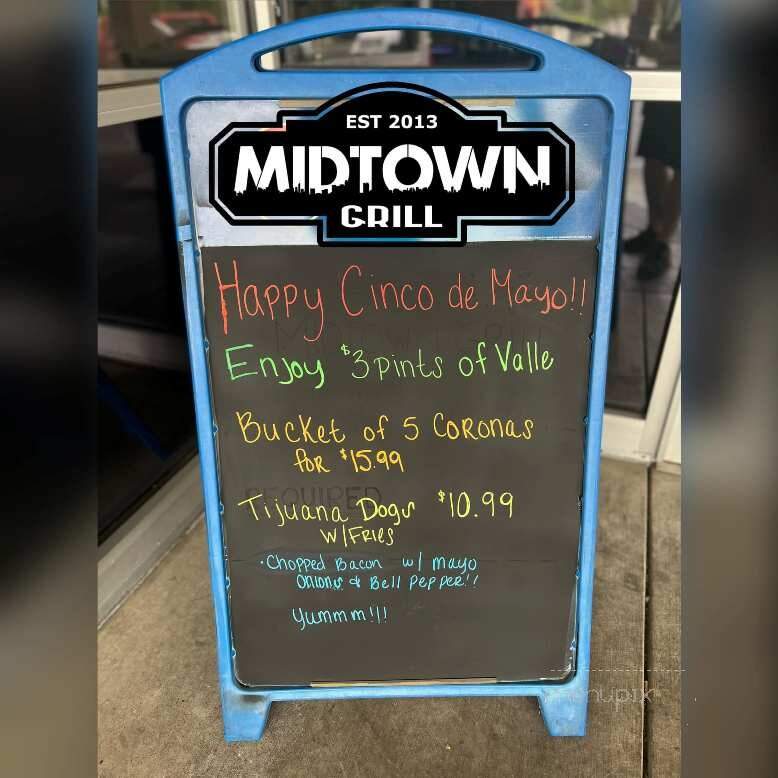 EST 2013
MIDTOWN
GRILL
Happy Cinco de Mayo!!
Enjoy $3 pints of Valle
Bucket of 5 Coronas
for $15.99
REQUIRED
Tijuana Dogs $10.99
w/Fries
• Chopped Bacon w/ mayo
onions & Bell Pepper!!
Yummm!!!
menupix